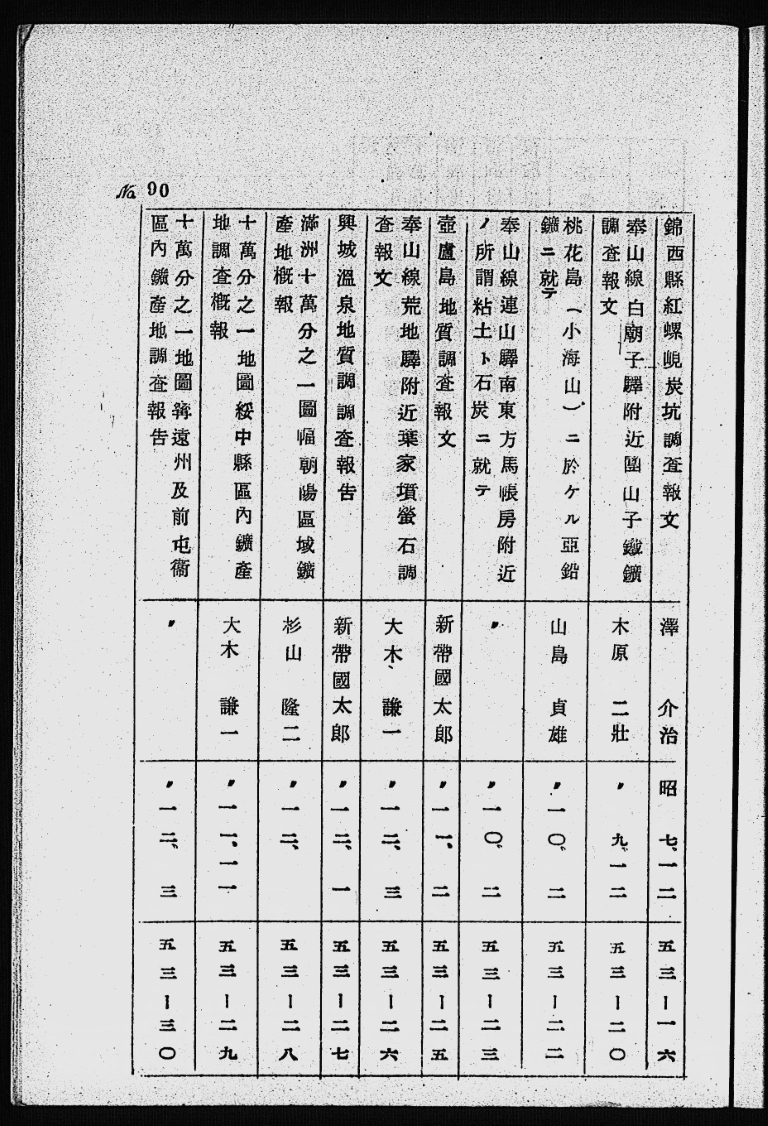 No. 90
錦西縣紅螺峴炭坑調査報文
澤　介治
昭　七、一二
五三ー一六
奉山線白廟子驛附近團山子鐵鑛
調査報文
木原　二壯
〃　九、一二
五三ー二〇
桃花島（小海山）ニ於ケル亞鉛
鑛ニ就テ
山島　貞雄
〃一〇、二
五三ー二二
奉山線連山驛南東方馬帳房附近
ノ所謂粘土ト石炭ニ就テ
〃
〃一〇、二
五三ー二三
壺盧島地質調査報文
新帶國太郎
〃一一、二
五三ー二五
奉山線荒地驛附近葉家墳螢石調
査報文
大木　謙一
〃一二、三
五三ー二六
興城溫泉地質調調査報告
新帶國太郎
〃一二、一
五三ー二七
滿洲十萬分之一圖幅朝陽區域鑛
產地槪報
杉山　隆二
〃一二、
五三ー二八
十萬分之一地圖綏中縣區內鑛產
地調査槪報
大木　謙一
〃一一、一一
五三ー二九
十萬分之一地圖寗遠州及前屯衞
區內鑛產地調査報告
〃
〃一二、三
五三ー三〇